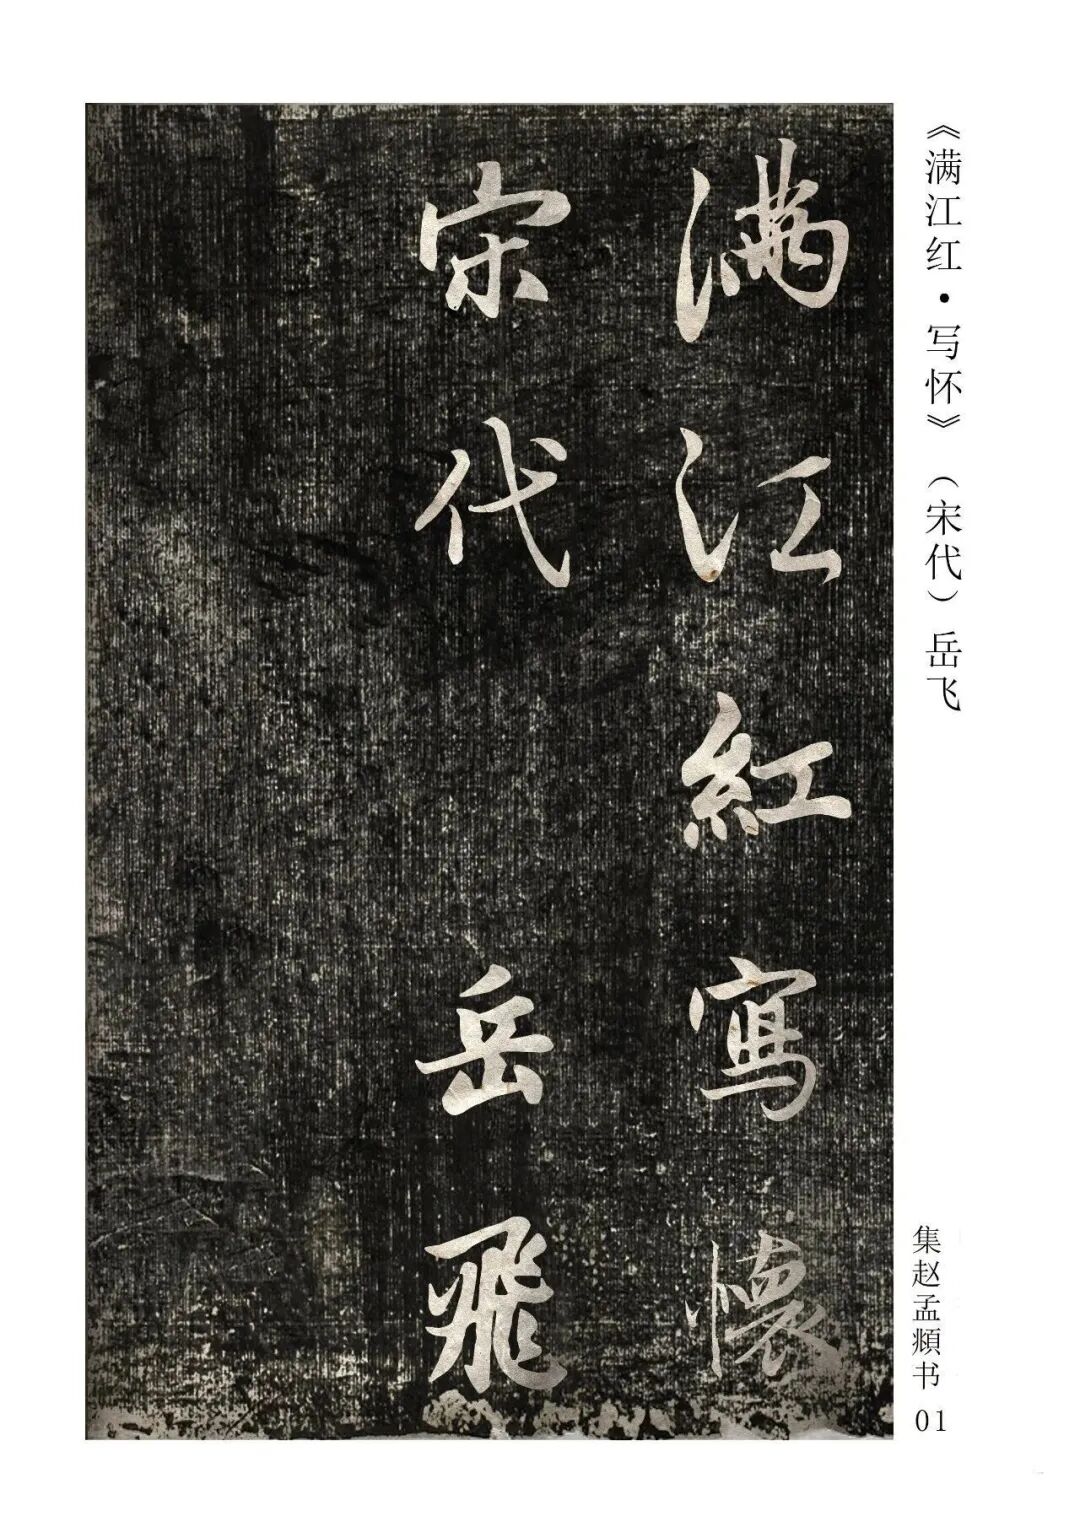 《满江红·写怀》（宋代）岳飞
滿江紅寫懷
宋代 岳飛
集赵孟頫书 01